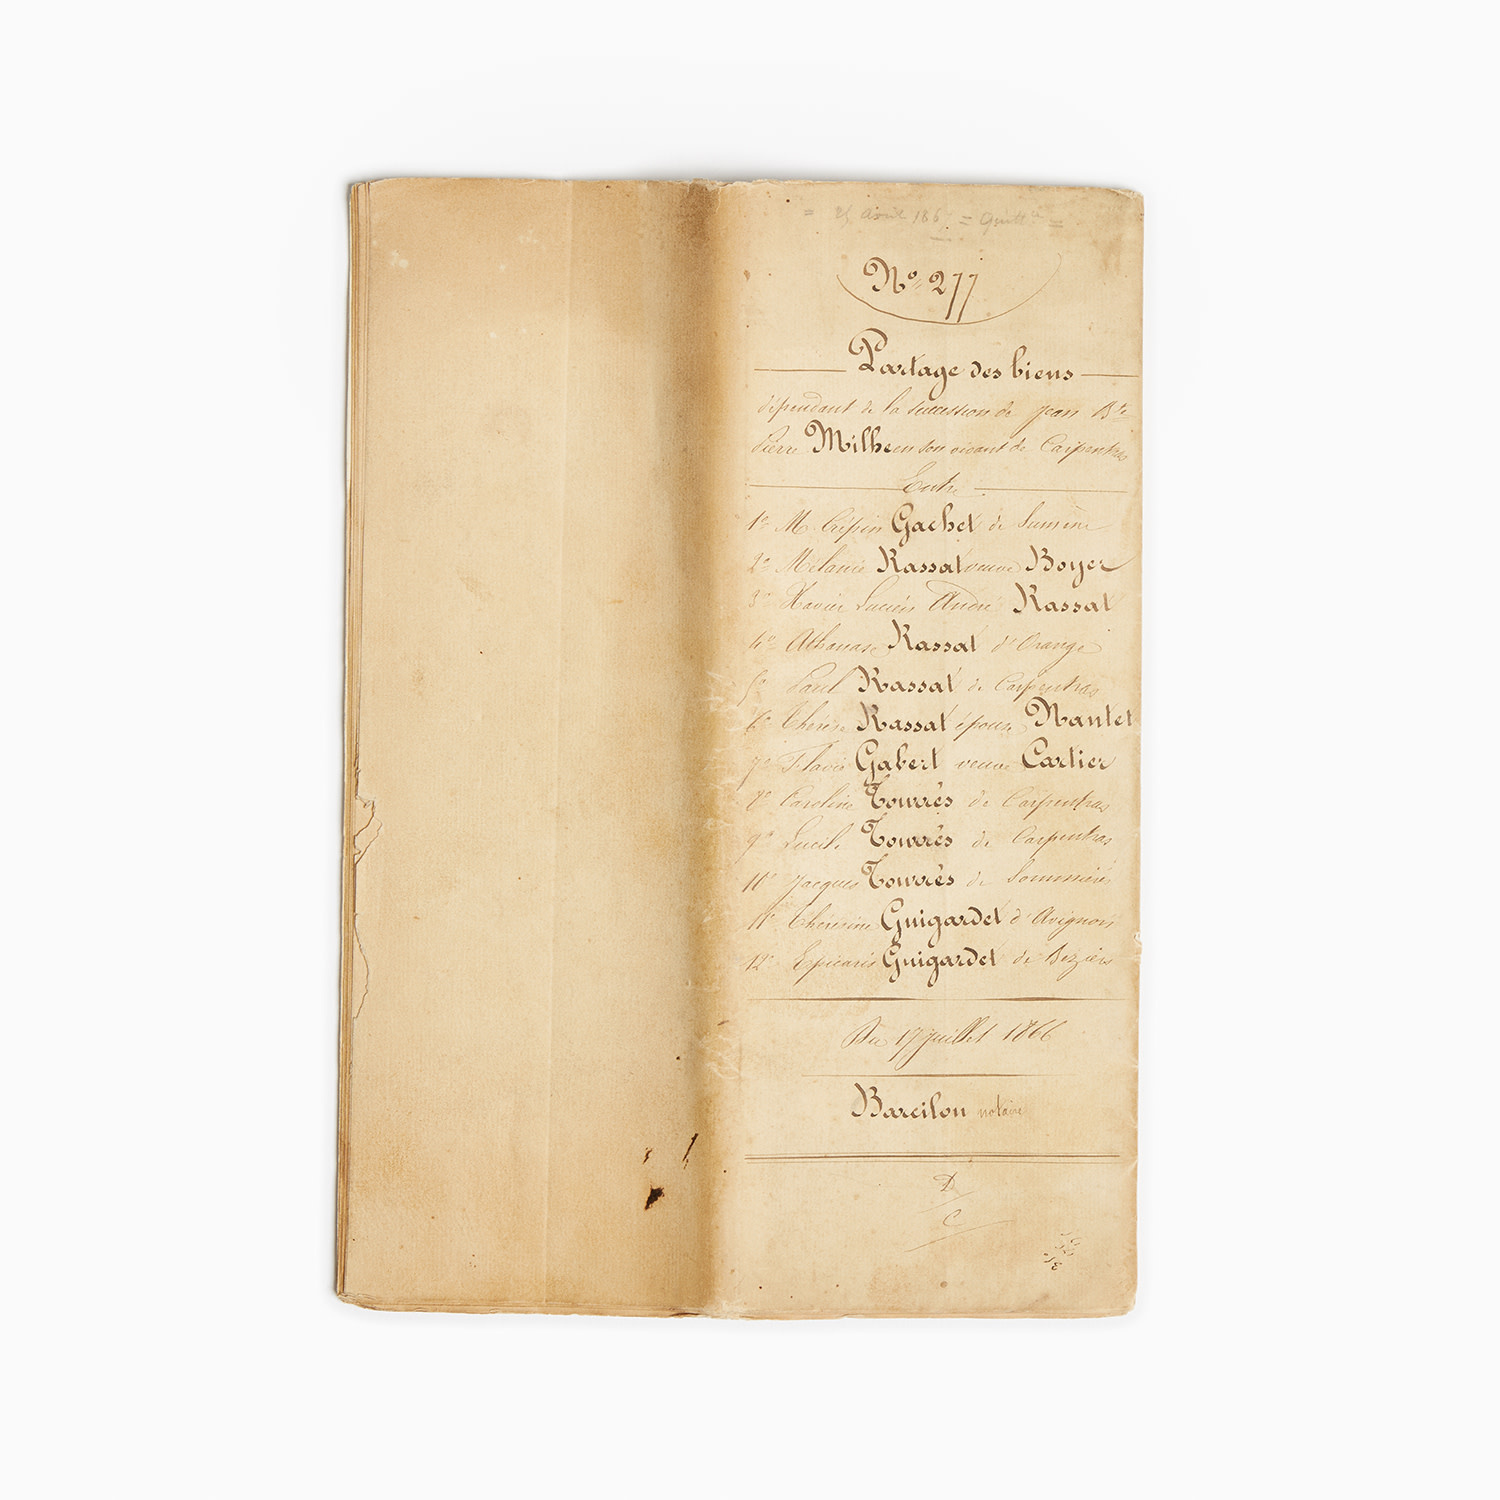 = 25 avril 186 = =
N° 277
Partage des biens
dépendant de la succession de Jean Bte
Pierre Milhe en son vivant de Carpentras
Entre
1° M Crépin Gachet de Sumène
2° Mélanie Rassat veuve Boyer
3° Xavier Lucien André Rassat
4° Athanase Rassat d'Orange
5° Paul Rassat de Carpentras
6° Thérèse Rassat épouse Nantet
7° Flavie Gabert veuve Cartier
8° Caroline Tourrès de Carpentras
9° Lucile Tourrès de Carpentras
10° Jacques Tourrès de Sommières
11° Thérésine Guigardet d'Avignon
12° Epicaris Guigardet de Béziers
Du 17 juillet 1866
Barcilon notaire
D
C